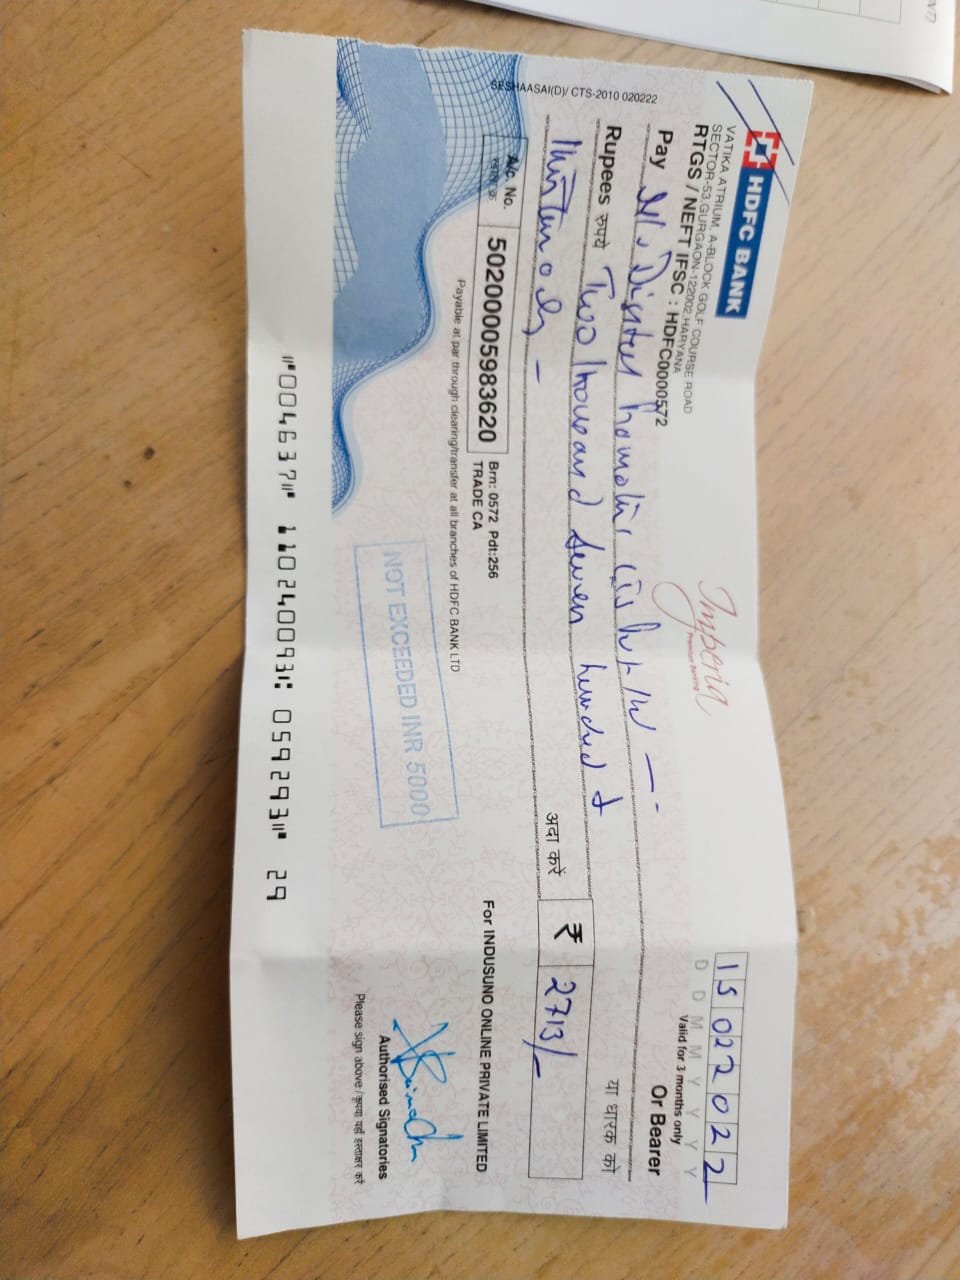 SESHAASAI(D)/ CTS-2010 020222
HDFC BANK
VATIKA ATRIUM, A-BLOCK GOLF COURSE ROAD
SECTOR-53,GURGAON-122002,HARYANA
RTGS / NEFT IFSC : HDFC0000572
Imperia
Premium Banking
15022022
D D M M Y Y Y Y
Valid for 3 months only
Pay
Or Bearer
या धारक को
Rupees रुपये Two thousand seven hundred &
thirteen only -
अदा करें ₹ 2713/-
A/c. No. 50200005983620
Brn: 0572 Pdt:256
TRADE CA
Payable at par through clearing/transfer at all branches of HDFC BANK LTD
For INDUSUNO ONLINE PRIVATE LIMITED
NOT EXCEEDED INR 5000
Authorised Signatories
Please sign above / कृपया यहाँ हस्ताक्षर करें
⑈004637⑈ 110240093⑆ 059293⑈ 29